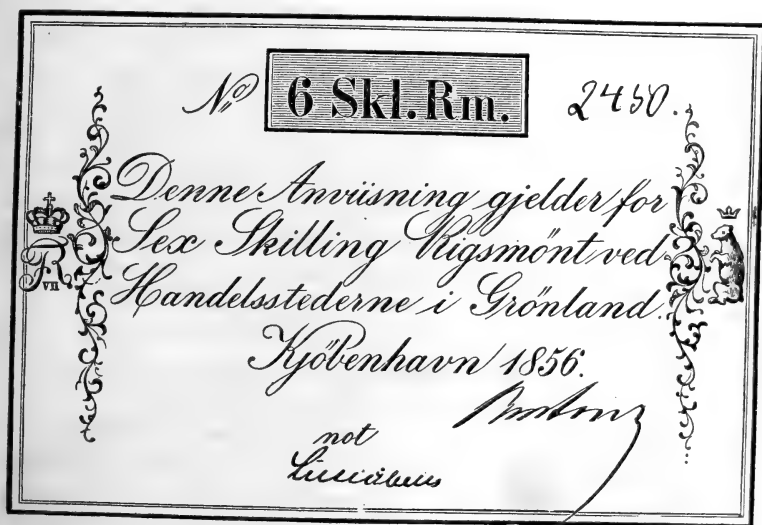 No 6 Skl. Rm. 2450.
Denne Anviisning gjelder for
Sex Skilling Rigsmönt ved
Handelsstederne i Grönland.
Kjöbenhavn 1856.
not
FR
VII